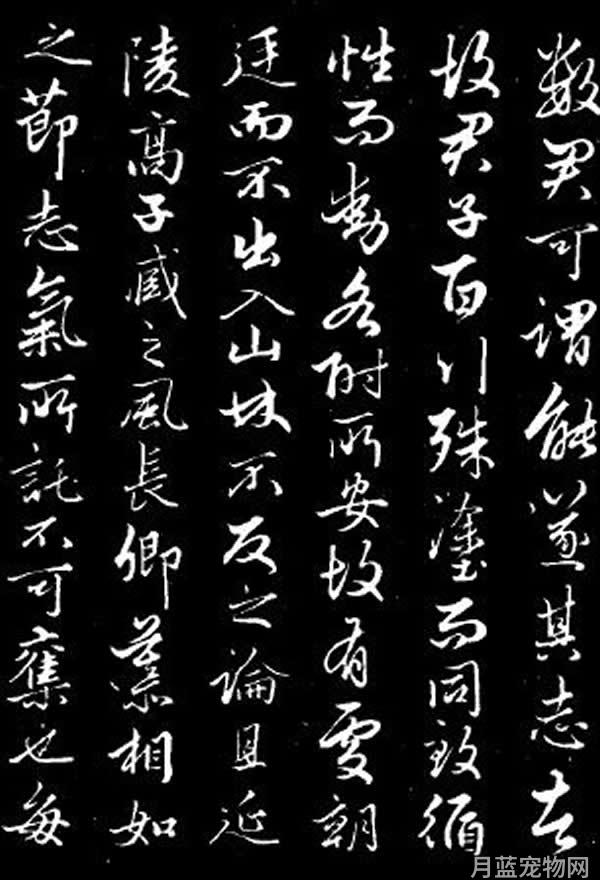 數君可謂能遂其志者
故君子百行殊塗而同致循
性而動各附所安故有處朝
廷而不出入山林不反之論且延
陵高子臧之風長卿慕相如
之節志氣所託不可奪也每
月蓝宠物网